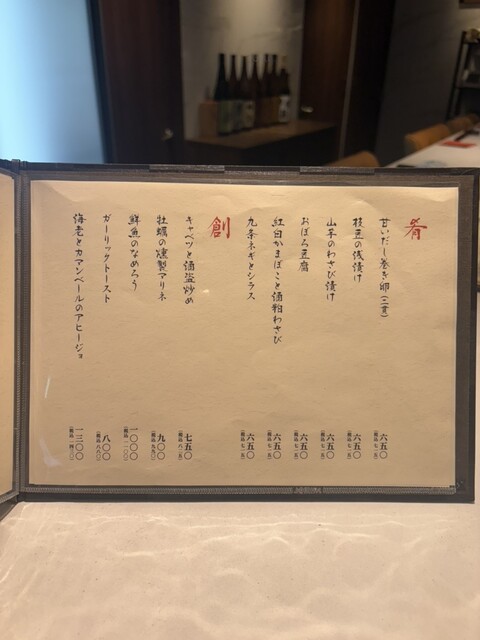 肴
甘いだし巻き卵(二貫)
六五〇
(税込 七一五)
枝豆の浅漬け
六五〇
(税込 七一五)
山芋のわさび漬け
六五〇
(税込 七一五)
おぼろ豆腐
六五〇
(税込 七一五)
紅白かまぼこと酒粕わさび
六五〇
(税込 七一五)
九条ネギとシラス
六五〇
(税込 七一五)
創
キャベツと酒盗炒め
七五〇
(税込 八二五)
牡蠣の燻製マリネ
九〇〇
(税込 九九〇)
鮮魚のなめろう
一〇〇〇
(税込 一一〇〇)
ガーリックトースト
八〇〇
(税込 八八〇)
海老とカマンベールのアヒージョ
一三〇〇
(税込 一四三〇)